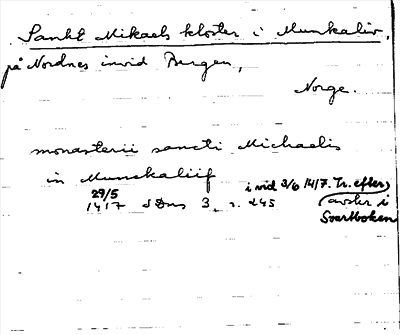 Sankt Mikaels kloster i Munkaliv,
på Nordnes invid Bergen,
Norge.
monasterii sancti Michaelis
in Munkaliif
29/5 i vid 3/6 1417. Tr. efter
1417 SDns 3, s. 245 avskr i
Svartboken